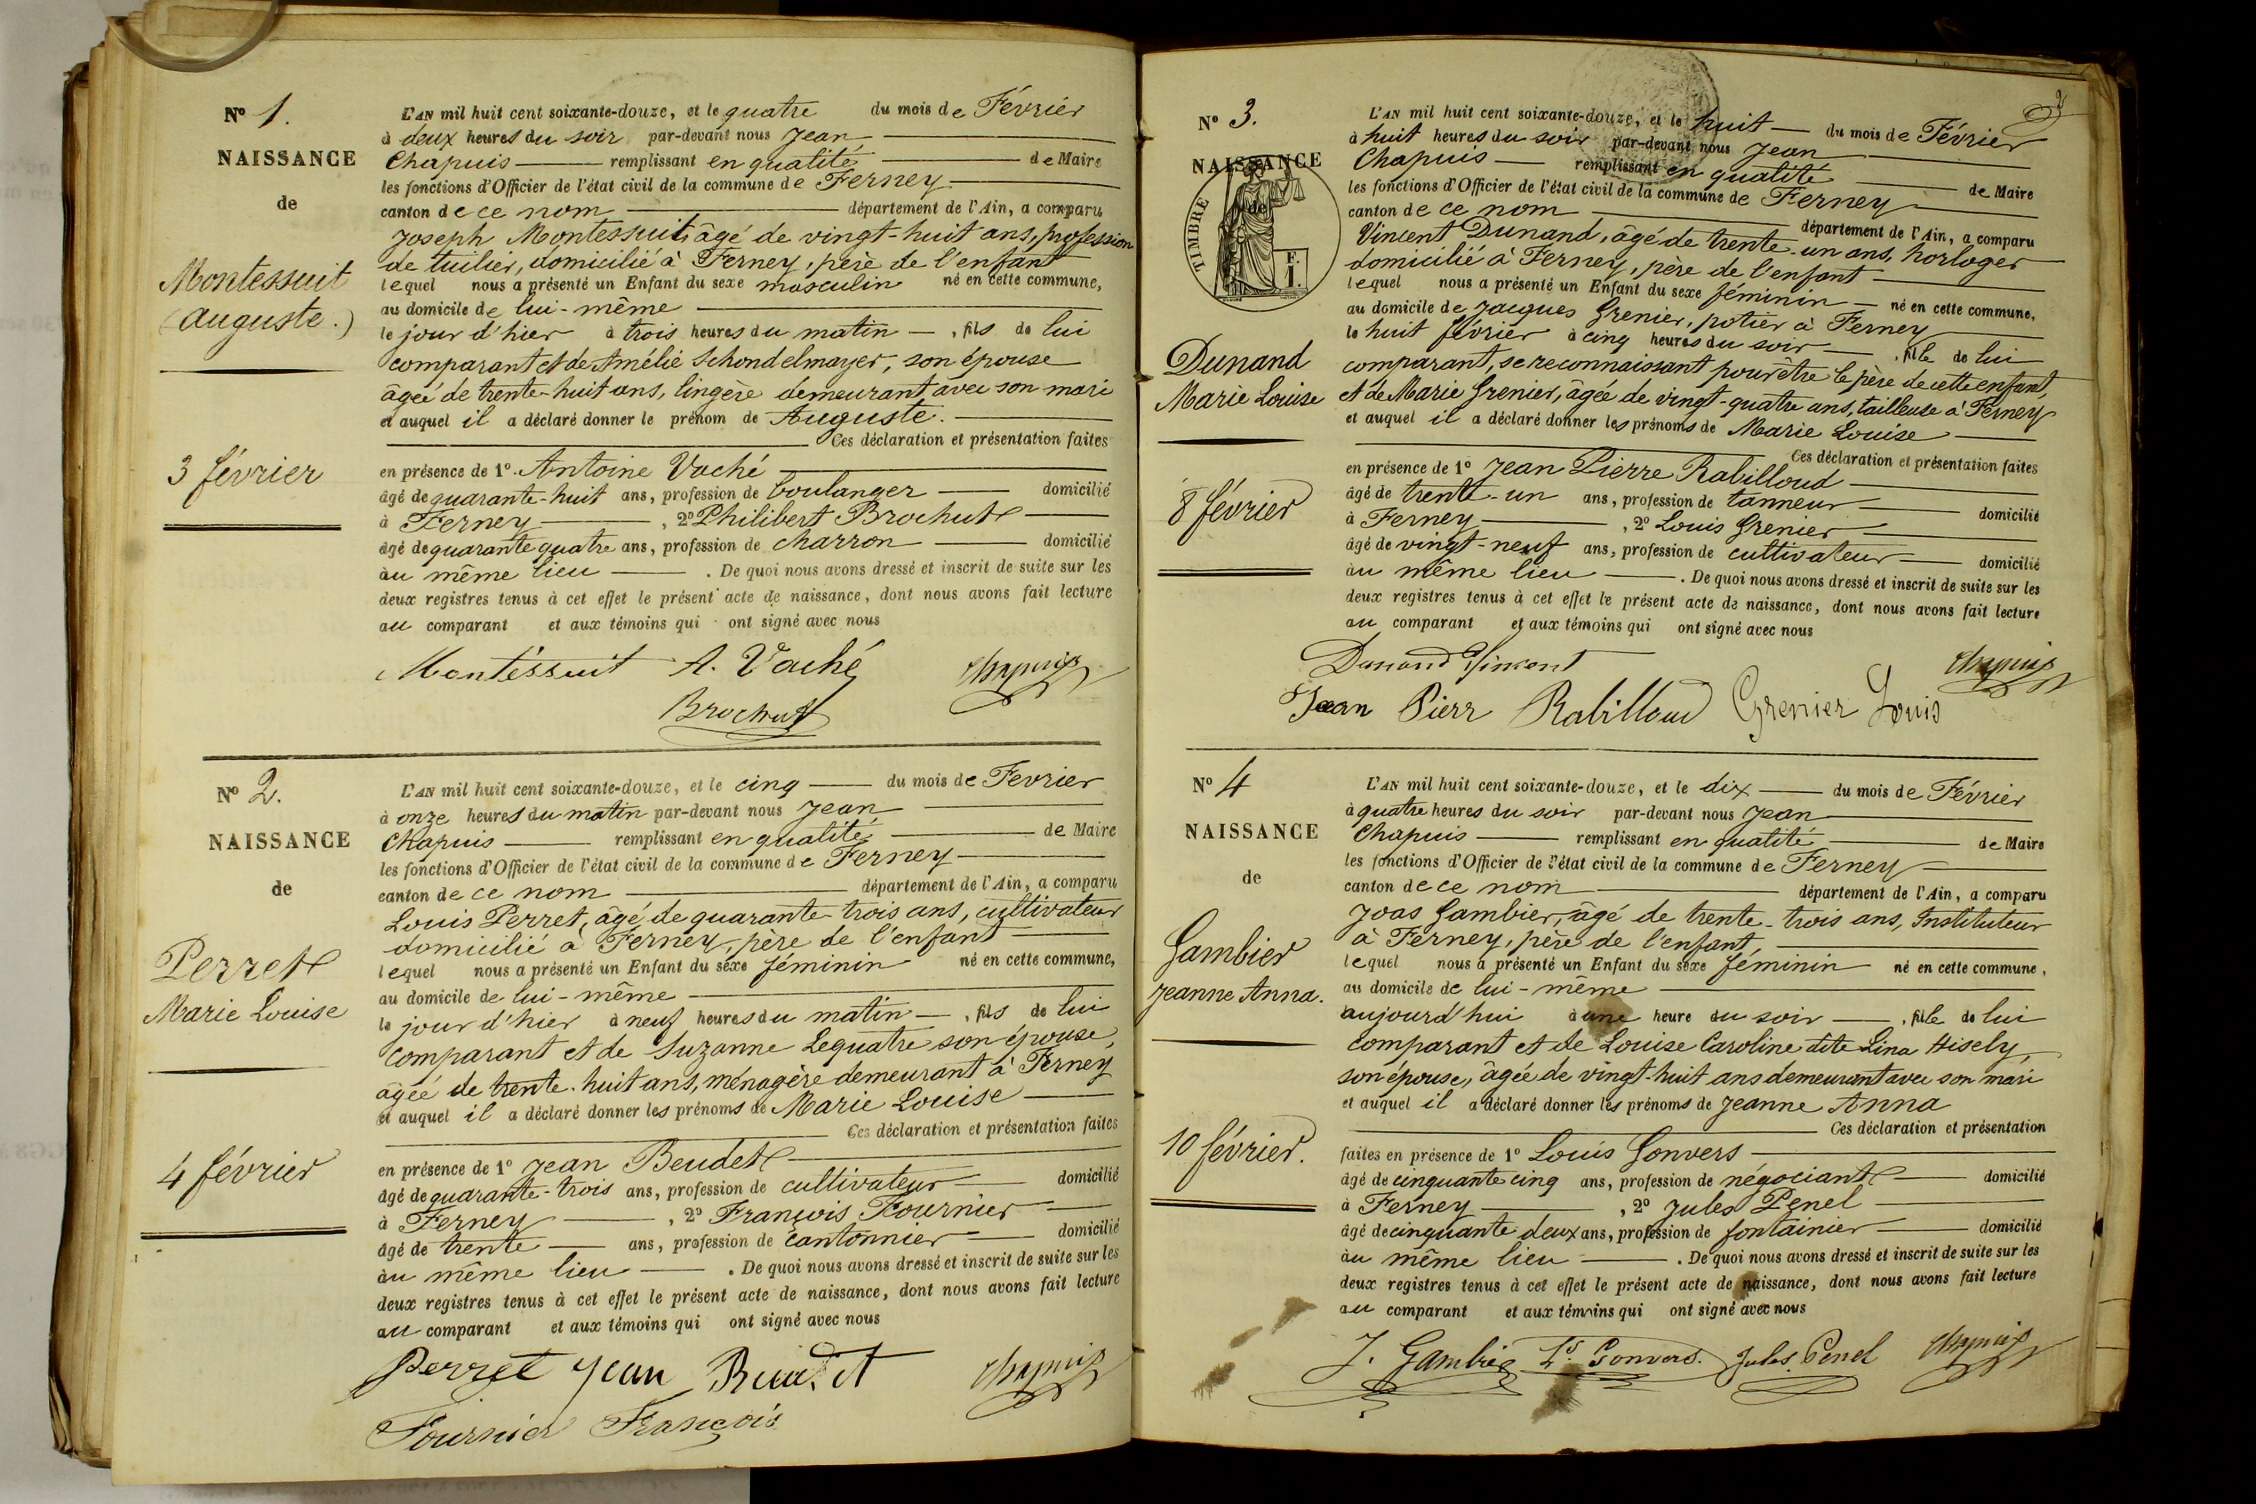 Nº 1.
NAISSANCE
de
Montessuit
(Auguste.)
3 février
L'AN mil huit cent soixante-douze, et le quatre du mois de Février
à deux heures du soir par-devant nous Jean
Chapuis remplissant en qualité de Maire
les fonctions d'Officier de l'état civil de la commune de Ferney
canton de ce nom département de l'Ain, a comparu
Joseph Montessuit, âgé de vingt-huit ans, profession
de tuilier, domicilié à Ferney, père de l'enfant
lequel nous a présenté un Enfant du sexe masculin né en cette commune,
au domicile de lui-même
le jour d'hier à trois heures du matin, fils de lui
comparant et de Amélie Schondelmayer, son épouse
âgée de trente-huit ans, lingère demeurant avec son mari
et auquel il a déclaré donner le prénom de Auguste.
Ces déclaration et présentation faites
en présence de 1º Antoine Vaché
âgé de quarante-huit ans, profession de boulanger domicilié
à Ferney, 2º Philibert Brochut
âgé de quarante quatre ans, profession de charron domicilié
au même lieu. De quoi nous avons dressé et inscrit de suite sur les
deux registres tenus à cet effet le présent acte de naissance, dont nous avons fait lecture
au comparant et aux témoins qui ont signé avec nous
Montessuit A. Vaché Chapuis
Brochut
Nº 2.
NAISSANCE
de
Perret
Marie Louise
4 février
L'AN mil huit cent soixante-douze, et le cinq du mois de Fevrier
à onze heures du matin par-devant nous Jean
Chapuis remplissant en qualité de Maire
les fonctions d'Officier de l'état civil de la commune de Ferney
canton de ce nom département de l'Ain, a comparu
Louis Perret, âgé de quarante-trois ans, cultivateur
domicilié à Ferney, père de l'enfant
lequel nous a présenté un Enfant du sexe féminin né en cette commune,
au domicile de lui-même
le jour d'hier à neuf heures du matin, fils de lui
comparant et de Suzanne Lequatre son épouse,
âgée de trente-huit ans, ménagère demeurant à Ferney
et auquel il a déclaré donner les prénoms de Marie Louise
Ces déclaration et présentation faites
en présence de 1º Jean Beudet
âgé de quarante-trois ans, profession de cultivateur domicilié
à Ferney, 2º François Fournier
âgé de trente ans, profession de cantonnier domicilié
au même lieu. De quoi nous avons dressé et inscrit de suite sur les
deux registres tenus à cet effet le présent acte de naissance, dont nous avons fait lecture
au comparant et aux témoins qui ont signé avec nous
Perret Jean Beudet Chapuis
Fournier François
2
Nº 3.
NAISSANCE
de
TIMBRE
F.
1.
Dunand
Marie Louise
8 février
L'AN mil huit cent soixante-douze, et le huit du mois de Février
à huit heures du soir par-devant nous Jean
Chapuis remplissant en qualité de Maire
les fonctions d'Officier de l'état civil de la commune de Ferney
canton de ce nom département de l'Ain, a comparu
Vincent Dunand, âgé de trente-un ans, horloger
domicilié à Ferney, père de l'enfant
lequel nous a présenté un Enfant du sexe féminin né en cette commune,
au domicile de Jacques Grenier, potier à Ferney
le huit février à cinq heures du soir, fille de lui
comparant, se reconnaissant pour être le père de cette enfant,
et de Marie Grenier, âgée de vingt-quatre ans, tailleuse à Ferney
et auquel il a déclaré donner les prénoms de Marie Louise
Ces déclaration et présentation faites
en présence de 1º Jean Pierre Rabilloud
âgé de trente-un ans, profession de tanneur domicilié
à Ferney, 2º Louis Grenier
âgé de vingt-neuf ans, profession de cultivateur domicilié
au même lieu. De quoi nous avons dressé et inscrit de suite sur les
deux registres tenus à cet effet le présent acte de naissance, dont nous avons fait lecture
au comparant et aux témoins qui ont signé avec nous
Dunand Vincent Chapuis
Jean Pierr Rabilloud Grenier Louis
Nº 4
NAISSANCE
de
Gambier
Jeanne Anna.
10 février.
L'AN mil huit cent soixante-douze, et le dix du mois de Février
à quatre heures du soir par-devant nous Jean
Chapuis remplissant en qualité de Maire
les fonctions d'Officier de l'état civil de la commune de Ferney
canton de ce nom département de l'Ain, a comparu
Joas Gambier, âgé de trente-trois ans, Instituteur
à Ferney, père de l'enfant,
lequel nous a présenté un Enfant du sexe féminin né en cette commune,
au domicile de lui-même
aujourd'hui à une heure du soir, fille de lui
comparant et de Louise Caroline dite Lina Hisely,
son épouse, âgée de vingt-huit ans demeurant avec son mari
et auquel il a déclaré donner les prénoms de Jeanne Anna
Ces déclaration et présentation
faites en présence de 1º Louis Gonvers
âgé de cinquante cinq ans, profession de négociant domicilié
à Ferney, 2º Jules Penel
âgé de cinquante deux ans, profession de fontainier domicilié
au même lieu. De quoi nous avons dressé et inscrit de suite sur les
deux registres tenus à cet effet le présent acte de naissance, dont nous avons fait lecture
au comparant et aux témoins qui ont signé avec nous
J. Gambier Ls Gonvers. Jules Penel Chapuis